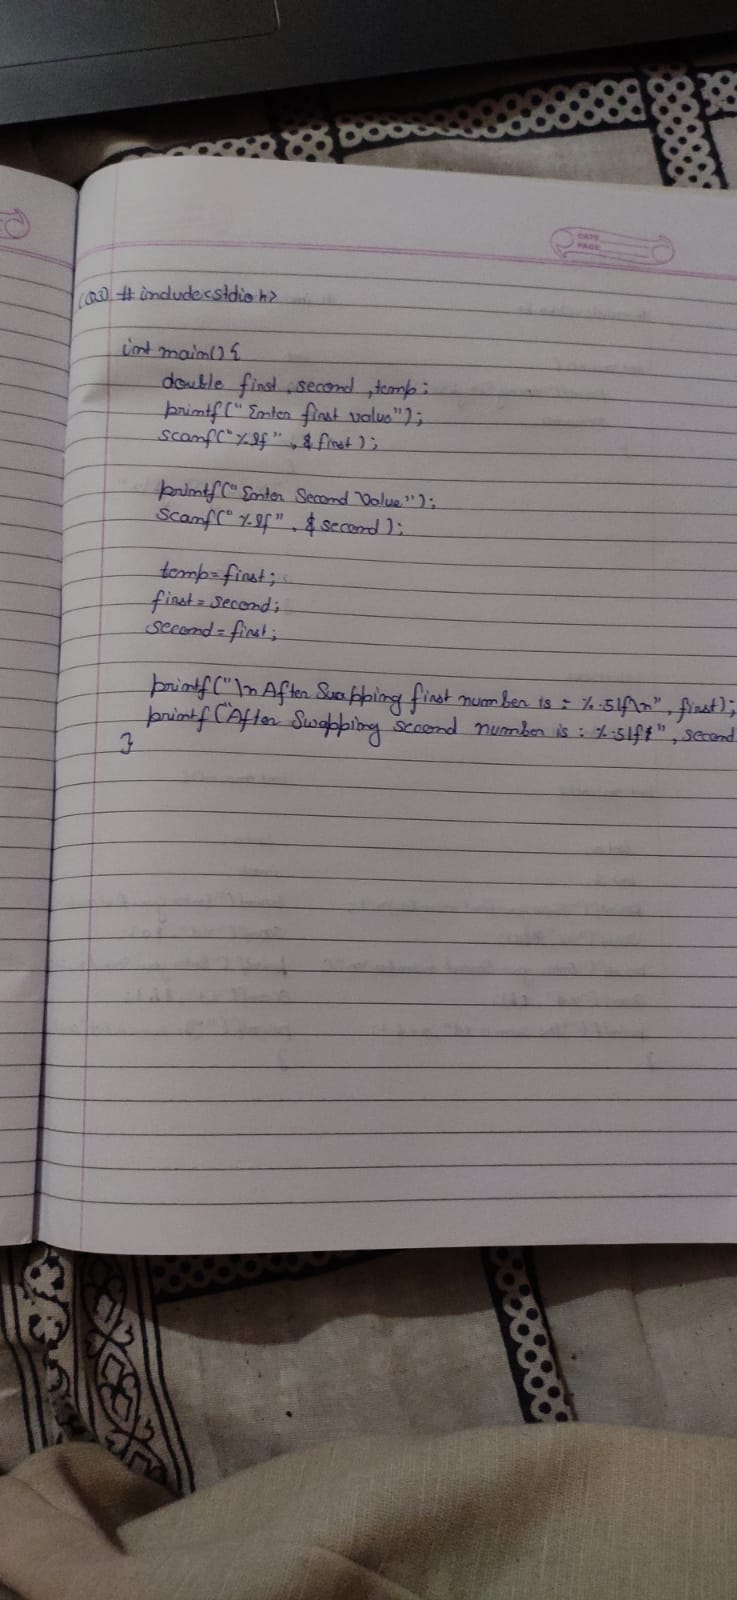 DATE
PAGE
(Q3) #include<stdio h>
int main() {
double first, second, temp;
printf("Enter first value");
scanf("%lf", &first);
printf("Enter Second Value");
scanf("%lf", &second);
temp=first;
first=second;
second=first;
printf("\n After Swapping first number is = %.5lf\n", first);
printf("After Swapping second number is : %.5lf", second
}